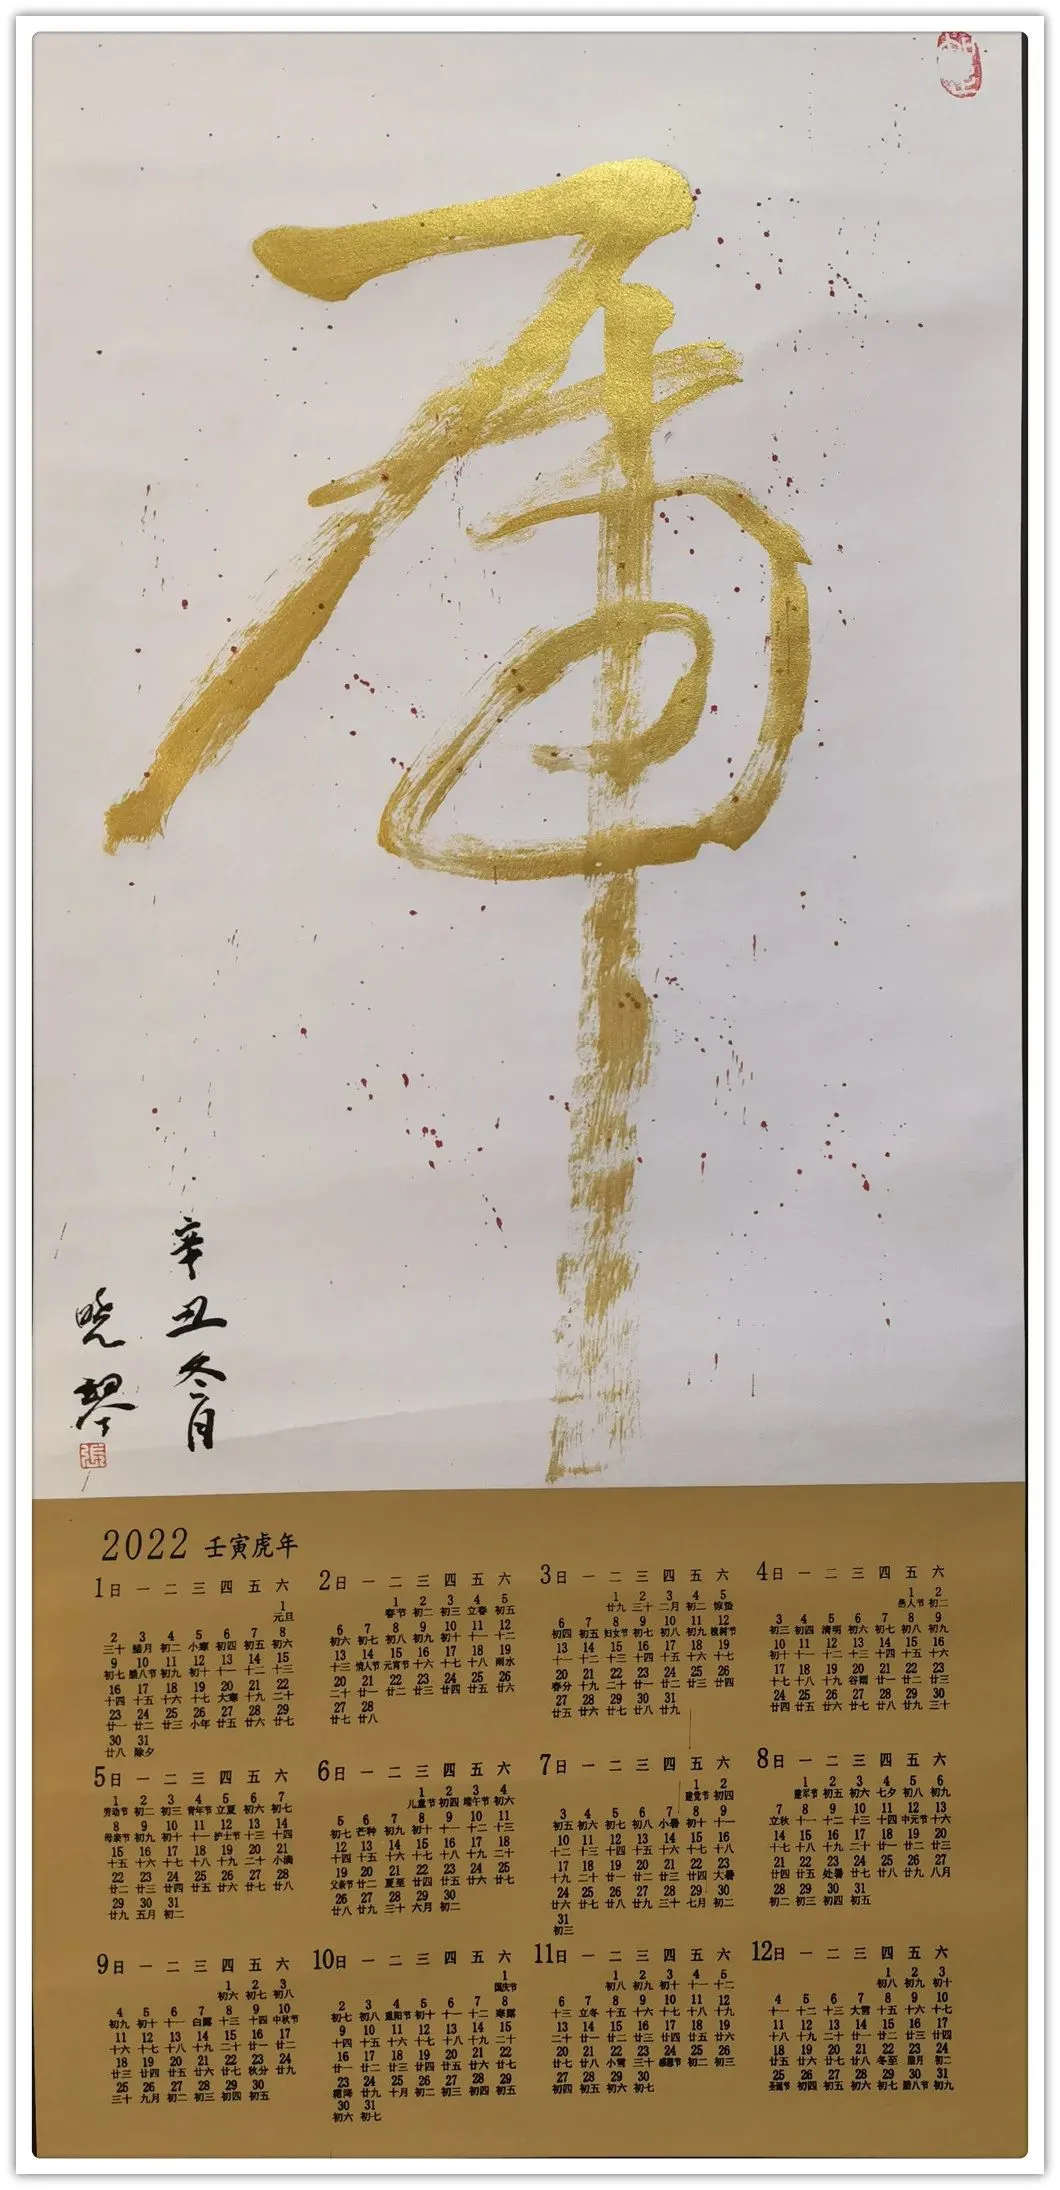 虎
辛丑冬月
晓琴
张
2022 壬寅虎年
1 日 一 二 三 四 五 六
1
元旦
2 3 4 5 6 7 8
三十 腊月 初二 小寒 初四 初五 初六
9 10 11 12 13 14 15
初七 腊八节 初九 初十 十一 十二 十三
16 17 18 19 20 21 22
十四 十五 十六 十七 大寒 十九 二十
23 24 25 26 27 28 29
廿一 廿二 廿三 小年 廿五 廿六 廿七
30 31
廿八 除夕
2 日 一 二 三 四 五 六
1 2 3 4 5
春节 初二 初三 立春 初五
6 7 8 9 10 11 12
初六 初七 初八 初九 初十 十一 十二
13 14 15 16 17 18 19
十三 情人节 元宵节 十六 十七 十八 雨水
20 21 22 23 24 25 26
二十 廿一 廿二 廿三 廿四 廿五 廿六
27 28
廿七 廿八
3 日 一 二 三 四 五 六
1 2 3 4 5
廿九 三十 二月 初二 惊蛰
6 7 8 9 10 11 12
初四 初五 妇女节 初七 初八 初九 植树节
13 14 15 16 17 18 19
十一 十二 十三 十四 十五 十六 十七
20 21 22 23 24 25 26
春分 十九 二十 廿一 廿二 廿三 廿四
27 28 29 30 31
廿五 廿六 廿七 廿八 廿九
4 日 一 二 三 四 五 六
1 2
愚人节 初二
3 4 5 6 7 8 9
初三 初四 清明 初六 初七 初八 初九
10 11 12 13 14 15 16
初十 十一 十二 十三 十四 十五 十六
17 18 19 20 21 22 23
十七 十八 十九 谷雨 廿一 廿二 廿三
24 25 26 27 28 29 30
廿四 廿五 廿六 廿七 廿八 廿九 三十
5 日 一 二 三 四 五 六
1 2 3 4 5 6 7
劳动节 初二 初三 青年节 立夏 初六 初七
8 9 10 11 12 13 14
母亲节 初九 初十 十一 护士节 十三 十四
15 16 17 18 19 20 21
十五 十六 十七 十八 十九 二十 小满
22 23 24 25 26 27 28
廿二 廿三 廿四 廿五 廿六 廿七 廿八
29 30 31
廿九 五月 初二
6 日 一 二 三 四 五 六
1 2 3 4
儿童节 初四 端午节 初六
5 6 7 8 9 10 11
初七 芒种 初九 初十 十一 十二 十三
12 13 14 15 16 17 18
十四 十五 十六 十七 十八 十九 二十
19 20 21 22 23 24 25
父亲节 廿二 夏至 廿四 廿五 廿六 廿七
26 27 28 29 30
廿八 廿九 三十 六月 初二
7 日 一 二 三 四 五 六
1 2
建党节 初四
3 4 5 6 7 8 9
初五 初六 初七 初八 小暑 初十 十一
10 11 12 13 14 15 16
十二 十三 十四 十五 十六 十七 十八
17 18 19 20 21 22 23
十九 二十 廿一 廿二 廿三 廿四 大暑
24 25 26 27 28 29 30
廿六 廿七 廿八 廿九 三十 七月 初二
31
初三
8 日 一 二 三 四 五 六
1 2 3 4 5 6
建军节 初五 初六 七夕 初八 初九
7 8 9 10 11 12 13
立秋 十一 十二 十三 十四 中元节 十六
14 15 16 17 18 19 20
十七 十八 十九 二十 廿一 廿二 廿三
21 22 23 24 25 26 27
廿四 廿五 处暑 廿七 廿八 廿九 八月
28 29 30 31
初二 初三 初四 初五
9 日 一 二 三 四 五 六
1 2 3
初六 初七 初八
4 5 6 7 8 9 10
初九 初十 十一 白露 十三 十四 中秋节
11 12 13 14 15 16 17
十六 十七 十八 十九 二十 廿一 廿二
18 19 20 21 22 23 24
廿三 廿四 廿五 廿六 廿七 秋分 廿九
25 26 27 28 29 30
三十 九月 初二 初三 初四 初五
10 日 一 二 三 四 五 六
1
国庆节
2 3 4 5 6 7 8
初七 初八 重阳节 初十 十一 十二 寒露
9 10 11 12 13 14 15
十四 十五 十六 十七 十八 十九 二十
16 17 18 19 20 21 22
廿一 廿二 廿三 廿四 廿五 廿六 廿七
23 24 25 26 27 28 29
霜降 廿九 十月 初二 初三 初四 初五
30 31
初六 初七
11 日 一 二 三 四 五 六
1 2 3 4 5
初八 初九 初十 十一 十二
6 7 8 9 10 11 12
十三 立冬 十五 十六 十七 十八 十九
13 14 15 16 17 18 19
二十 廿一 廿二 廿三 廿四 廿五 廿六
20 21 22 23 24 25 26
廿七 廿八 小雪 三十 感恩节 初二 初三
27 28 29 30
初四 初五 初六 初七
12 日 一 二 三 四 五 六
1 2 3
初八 初九 初十
4 5 6 7 8 9 10
十一 十二 十三 大雪 十五 十六 十七
11 12 13 14 15 16 17
十八 十九 二十 廿一 廿二 廿三 廿四
18 19 20 21 22 23 24
廿五 廿六 廿七 廿八 冬至 腊月 初二
25 26 27 28 29 30 31
圣诞节 初四 初五 初六 初七 腊八节 初九